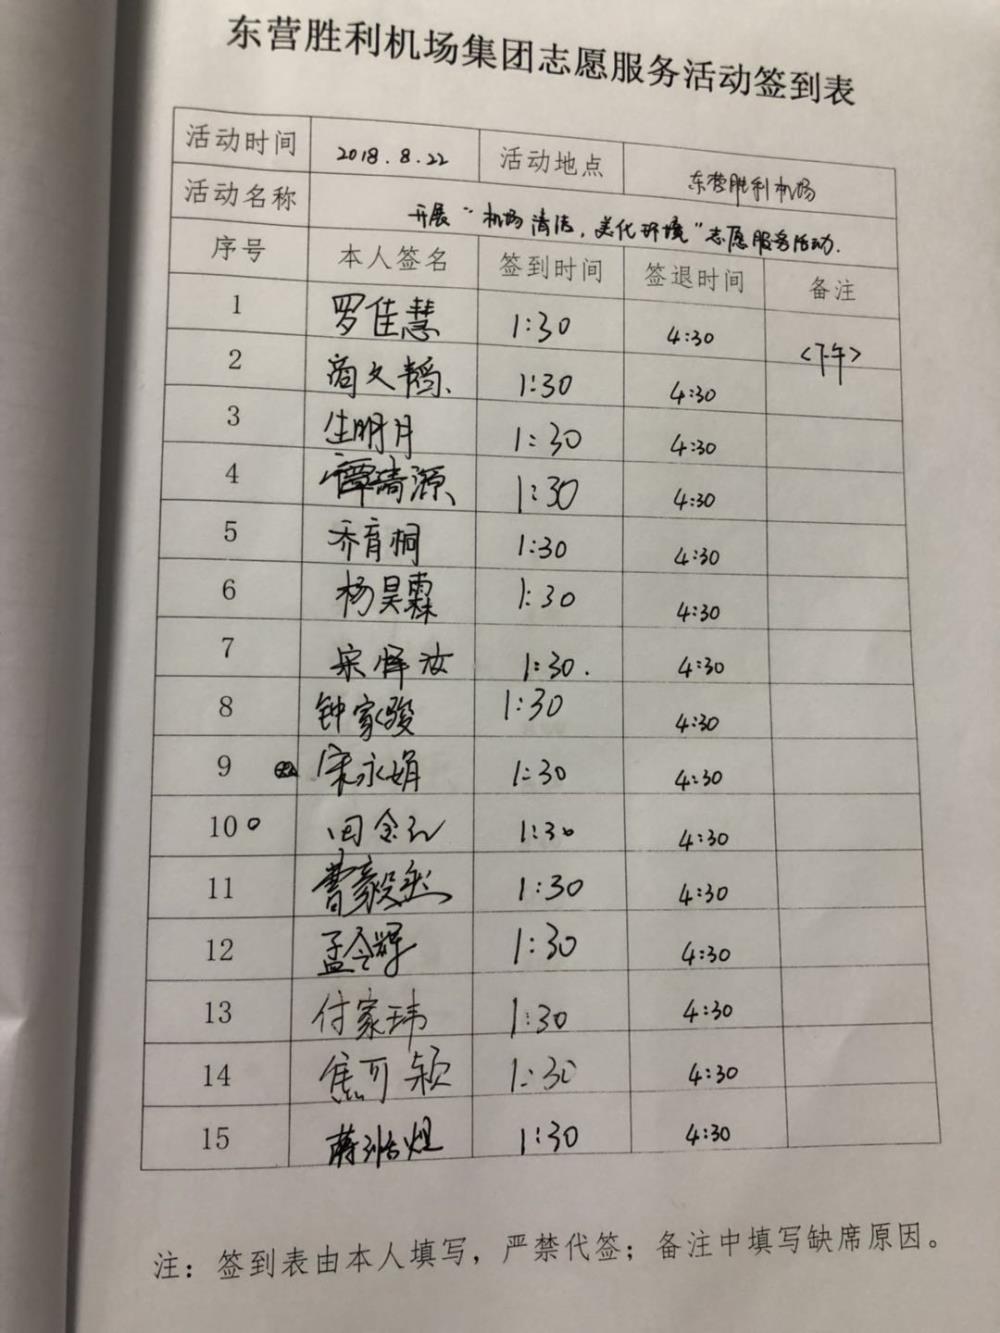 东营胜利机场集团志愿服务活动签到表
活动时间 2018.8.22 活动地点 东营胜利机场
活动名称 开展“机场清洁,美化环境”志愿服务活动.
序号 本人签名 签到时间 签退时间 备注
1 罗佳慧 1:30 4:30 <下午>
2 商文韬 1:30 4:30
3 生明月 1:30 4:30
4 谭琦源 1:30 4:30
5 乔育桐 1:30 4:30
6 杨昊霖 1:30 4:30
7 宋怿汝 1:30. 4:30
8 钟家骏 1:30 4:30
9 宋永娟 1:30 4:30
10 1:30 4:30
11 曹毅然 1:30 4:30
12 孟令辉 1:30 4:30
13 付家玮 1:30 4:30
14 焦可颖 1:30 4:30
15 1:30 4:30
注：签到表由本人填写，严禁代签；备注中填写缺席原因。